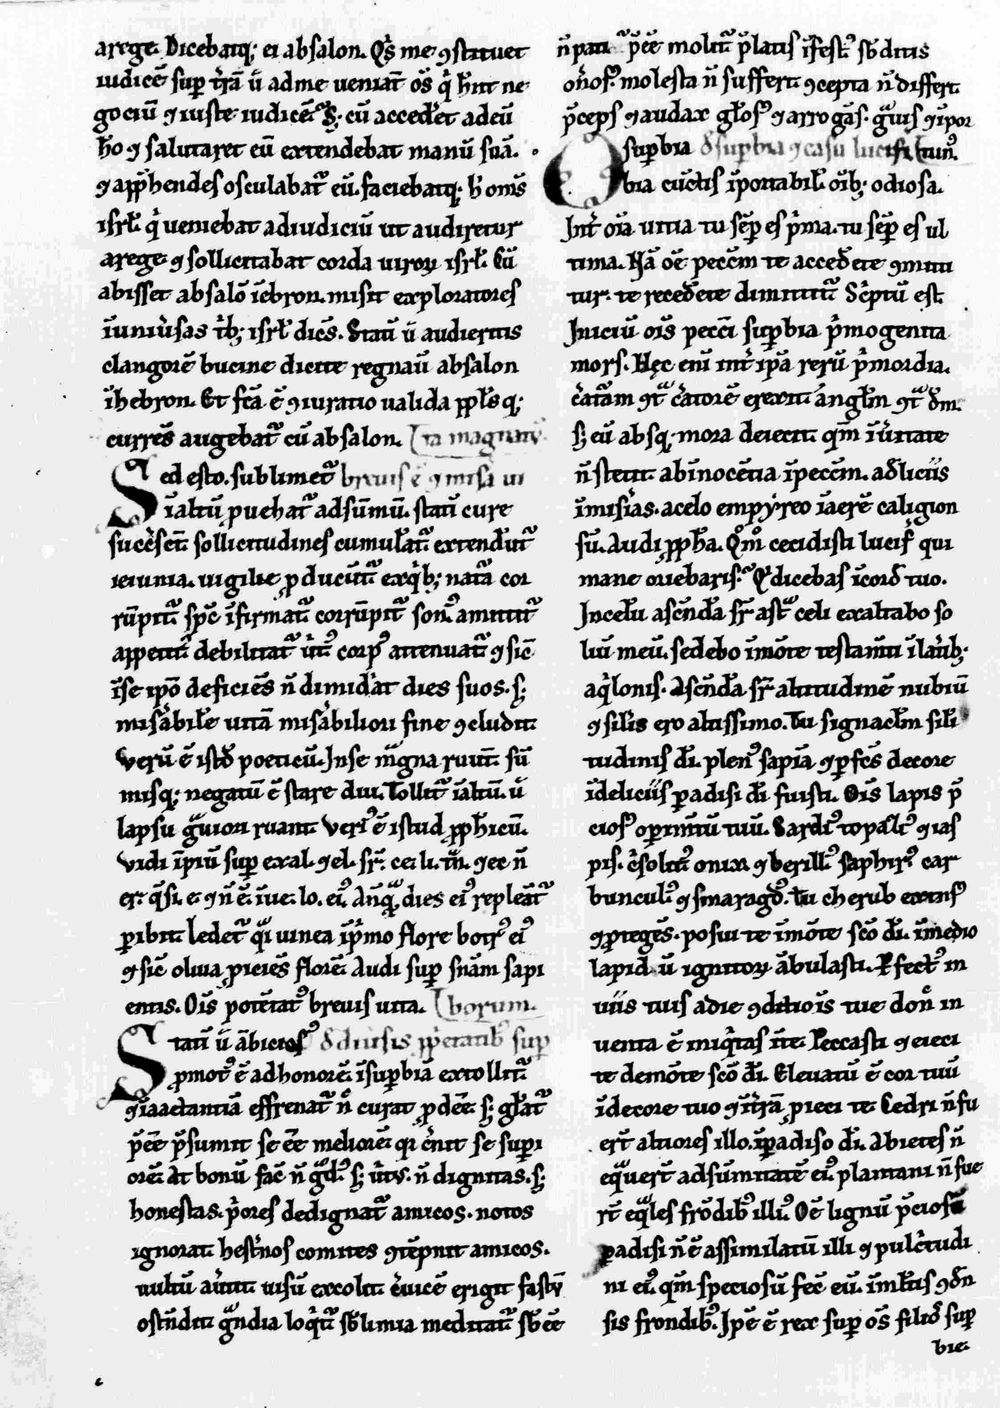 a rege. Dicebatq; ei absalon. Qͥs me ꝯstituet
iudicē suꝑ t̄rā ū ad me veniāt os̄ qͥ hn̄t ne
gociū ꝯ iuste iudicē. Sꝫ cū acced̄et ad eū
ho ꝯ salutaret eū extendebat manū suā.
ꝯ app̄hendēs osculabat᷑ eū. faciebatq; h̄ om̄i
isrl̄. qͥ veniebat ad iudiciū ut audiretur
a rege ꝯ sollicitabat corda viroꝝ isrl̄. Cū
abisset absalō ī ebron. misit exploratores
ī uniu̾sas t̾b; isrl̄ dicēs. Statī ū audieritis
clangorē bucine dicite regnauī absalon
ī hebron. Et fcā ē ꝯiuratio valida pplꝰs q;
currēs augebat᷑ cū absalon. ta magnatū
Sed esto. sublimet᷑ breuis ē ꝯ misa ui
ī altū ꝓuehat᷑ ad sūmū. statī cure
succ̾sēt sollicitudines cumulāt᷑ extendūt᷑
ieiunia. vigilie ꝓducūt᷑ ex qͥb; nata cor
rūpit᷑ spc̄ īfirmat᷑ corrūpit᷑ son᷒ amittit᷑
appetit᷑ debilitat᷑ ut᷒ corp᷒ attenuat᷑ ꝯ sic̄
ī se ip̄o deficiēs n̄ dimidi̾at dies suos. sꝫ
mis̾abile uitā mis̾abiliori fine ꝯcludit.
Verū ē istd̄ poeticū. In se magna ruūt. sū
misq; negatū ē stare diu. Tollit᷑ ī altū. ū
lapsu gͣuiori ruant. Ver᷒ ē istud ꝓph̄icū.
Vidi īpiū suꝑ exal. ꝯ el. sr̄. ce. li. tn̄. ꝯ ec n̄
er. qͣsi. e. ꝯ n̄ ē. īue. lo. ei᷒. An̄qͣ dies ei᷒ repleāt᷑
ꝑibit. ledet᷑ qͣi uinea ī pͥmo flore botr᷒ ei᷒
ꝯ sic̄ oliua ꝓiciēs florē. Audi suꝑ sn̄am sapi
entis. Oīs potētat᷒ breuis uita. borum.
Statī ū ābicios᷒ d̄ diu̾sis ꝓp̾etatib᷒ suꝑ
ꝓmot᷒ ē ad honorē. ī suꝑbia extollit᷑
ꝯ iactantiā effrenat᷑ n̄ curat ꝓdēē. sꝫ gl̄at᷑
p̄ēē p̄sumit se ēē meliorē. qi c̾nit se supi
orē. At bonū fac̄ n̄ gͣd᷒. sꝫ u̾t᷒. n̄ dignitas. sꝫ
honestas. pͥores dedignat᷑ amicos. notos
ignorat. hest̾nos comites ꝯtēpnit amicos.
uultū au̾tit. uisū excolit. c̾uicē erigit fastū
ostn̄dit gͣndia loqͥt᷑ sb̄limia meditat᷑ sb̄ēē
n̄ pati. p̄ēē molit᷑ p̄latis īfest᷒ sb̄ditis
on̄os᷒. molesta n̄ suffert. ꝯcepta n̄ differt.
p̄ceps ꝯ audax gl̄os᷒ ꝯ arrogās. gͣuis ꝯ ipor
O suꝑbia d̄ suꝑbia ꝯ casu lucif̾i tun᷒.
bia cūctis īportabil̄. oīb; odiosa.
Int̾ oīa uitia tu sēꝑ es pͥma. tu sēꝑ es ul
tima. Nā oē pecc̄m te acced̄ete ꝯmitti
tur. te reced̄ete dimittit᷑ Sc̾ptū est.
Iniciū oīs pecc̄i suꝑbia pͥmogenita
mors. Hec eni int̾ ip̄a rerū pͥmordia.
c̾aturam ꝯt᷑ c̾atorē erexit. anglm̄ ꝯt᷑ dm̄.
sꝫ eū absq; mora deiecit. qm̄ ī u̾itate
n̄ stetit. ab īnocētia ī pecc̄m. a dliciis
ī mis̾ias. a celo empyreo ī aerē caligion
sū. Audi ꝓph̄a. Qm̄ cecidisti lucif̾ qui
mane oriebaris. Qͥ dicebas ī cord̄ tuo.
In celū asc̄nda sr̄ astͣ celi exaltabo so
liū meū. sedebo ī mōte testam̄ti ī lat̾ib;
aqͥlonis. Asc̄nda sr̄ altitudinē nubiū
ꝯ silīs ero altissimo. Tu signaclm̄ sili
tudinis dī. plen᷒ sapīa ꝯ ꝑfcs̄ decore
ī deliciis ꝑadisi dī fuisti. Oīs lapis p̄
cios᷒ oꝑimtū tuū. Sardi᷒ topasi᷒ ꝯ ias
pis. c̾solit᷒ onix ꝯ berill᷒ saphir᷒ car
buncul᷒ ꝯ smaragd᷒. Tu cherub extens᷒
ꝯ ꝓtegēs. posui te ī mōte scō dī. ī medio
lapid̄ū ignitoꝝ ābulasti. Ꝑfect᷒ in
uiis tuis a die ꝯditiōis tue don̄ in
uenta ē iniqͥtas ī te. Peccasti ꝯ eieci
te de mōte scō dī. Eleuatū ē cor tuū
ī decore tuo ꝯ ī t̾rā ꝓieci te. Cedri n̄ fu
ert̄ altiores illo. ī ꝑadiso dī. abietes n̄
eqͣuert̄ ad sūmitatē ei᷒. plantani n̄ fue
rt̄ eqͣles frōdib᷒ illi᷒. Oē lignū p̄ciosū
ꝑadisi n̄ ē assimilatū illi ꝯ pulc̾tudi
ni ei᷒. qm̄ speciosū fec̄ eū. ī mltīs ꝯdn̄
sis frondib᷒. Ip̄e ē rex suꝑ os̄ filios suꝑ
bie.